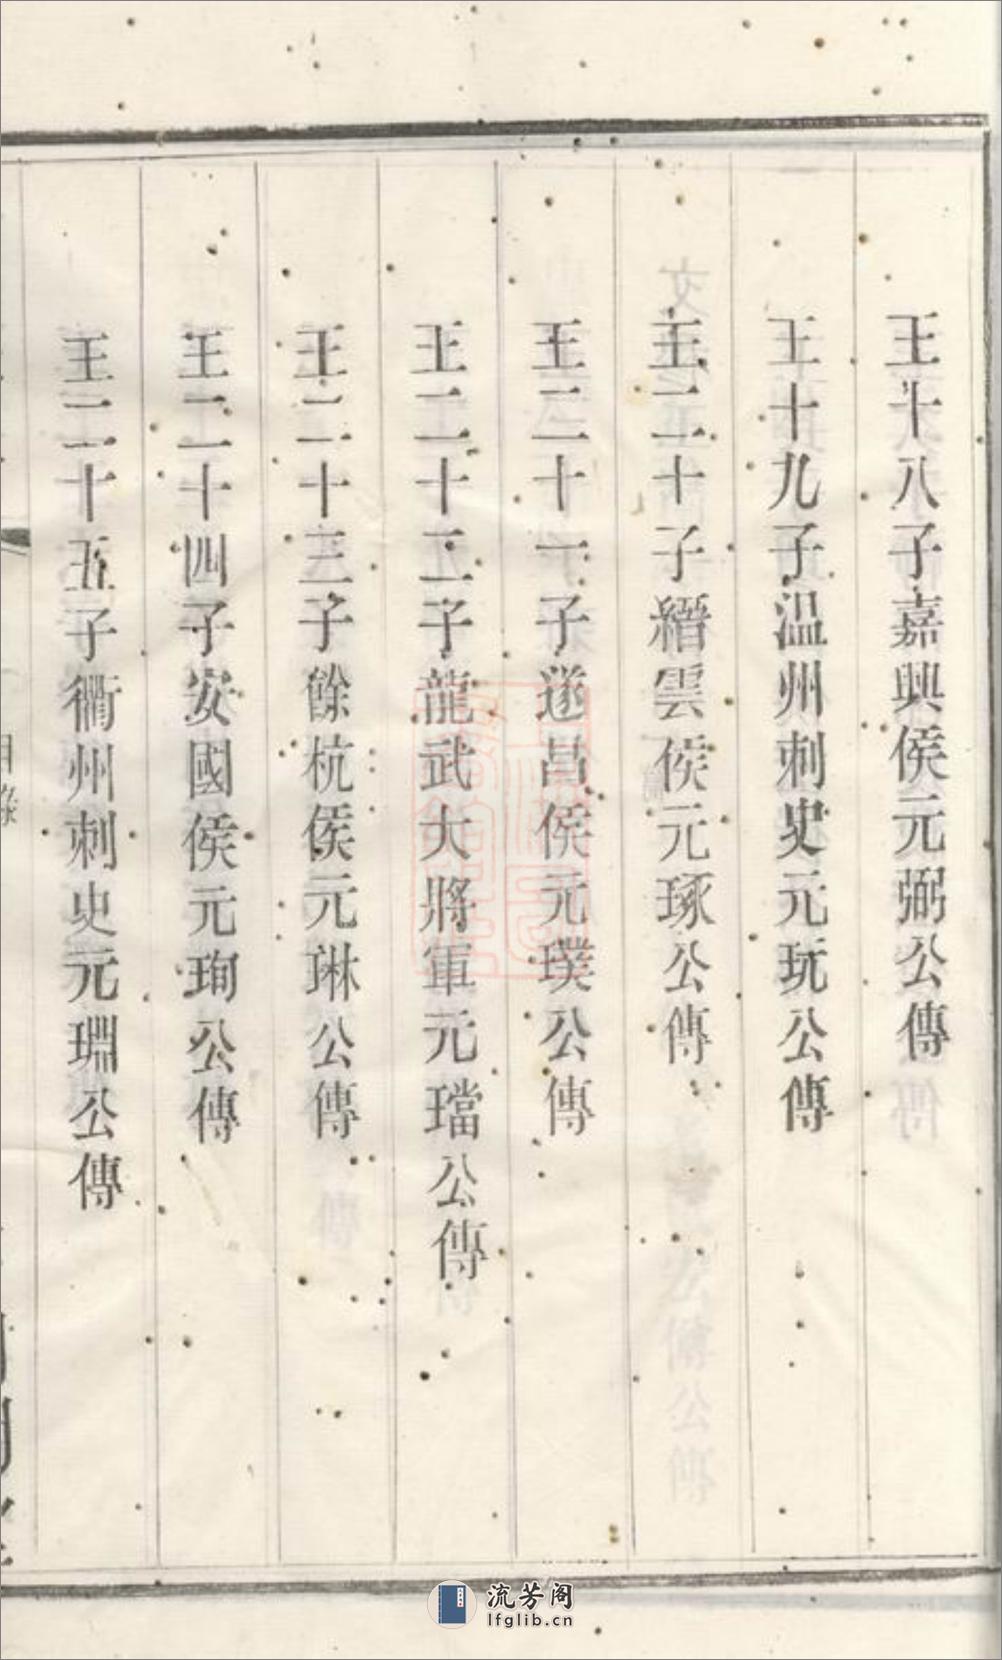 王十八子嘉興侯元弼公傳
王十九子溫州刺史元玩公傳
王二十子縉雲侯元琢公傳
王二十一子遂昌侯元璞公傳
王二十二子龍武大將軍元璫公傳
王二十三子餘杭侯元琳公傳
王二十四子安國侯元珣公傳
王二十五子衢州刺史元𤩽公傳
目錄
流芳阁
lfglib.cn